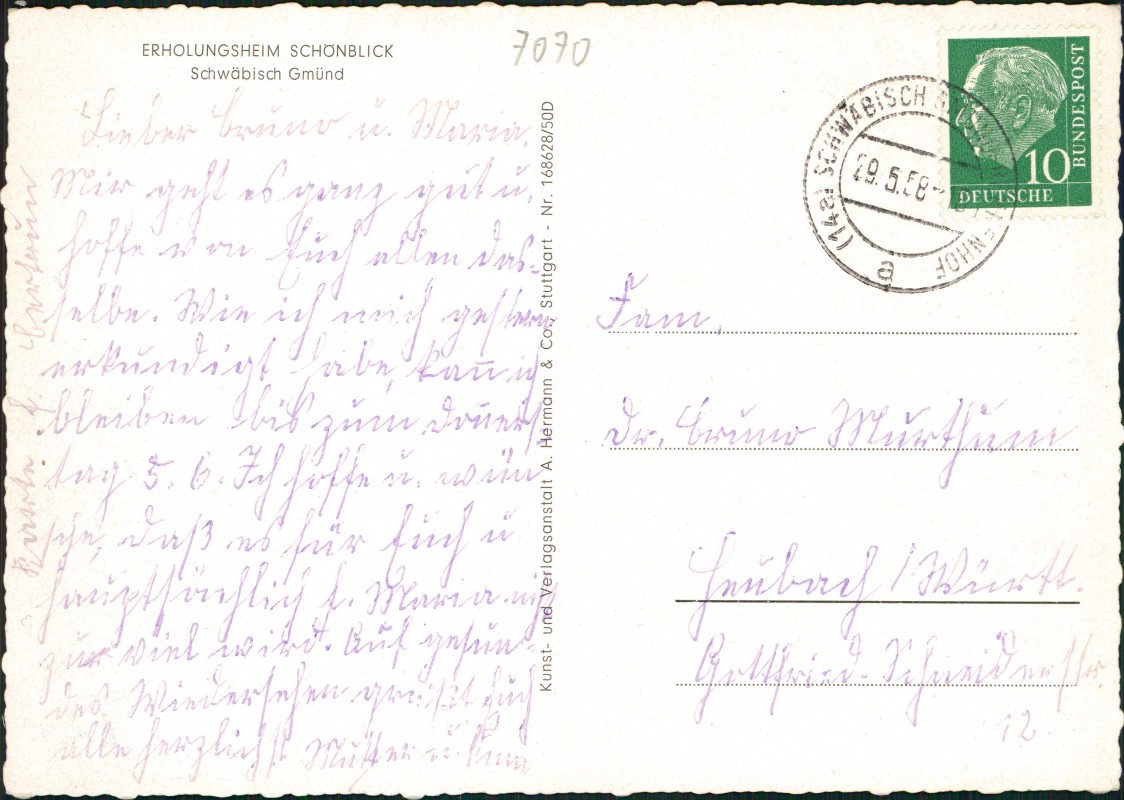 ERHOLUNGSHEIM SCHÖNBLICK
Schwäbisch Gmünd
7070
Lieber Bruno u. Maria.
Mir geht es ganz gut u.
hoffe von Euch allen das-
selbe. Wie ich mich gestern
erkundigt habe, kann ich
bleiben bis zum Donners
tag 5. 6. Ich hoffe u. wün
sche, daß es für Euch u
hauptsächlich f. Maria nicht
zur viel wird. Auf gesun-
des Wiedersehen grüßt Euch
alle herzlichst Mutter u.
Karte f.
Kunst- und Verlagsanstalt A. Hermann & Co., Stuttgart - Nr. 168628/50D
(14a) SCHWÄBISCH
29.5.58
a
10
DEUTSCHE
BUNDESPOST
Fam.
Dr. Bruno Murthum
Heubach / Württ.
Gottfried-Schneiderstr.
12.